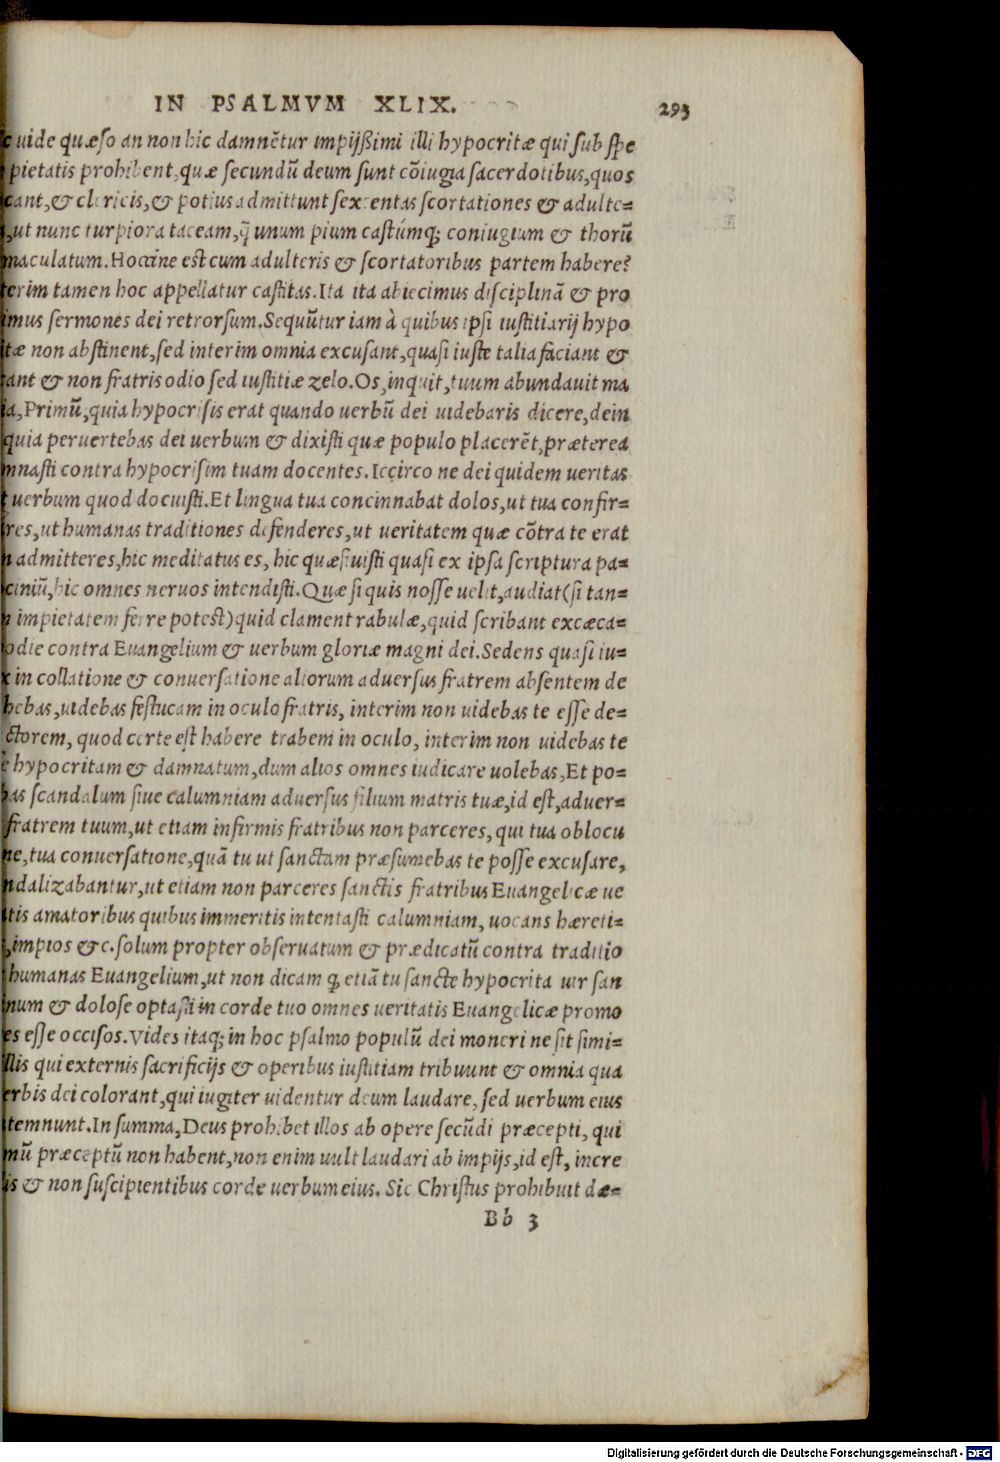 IN PSALMVM XLIX. 293
c uide quæso an non hic damnētur impijßimi illi hypocritæ qui sub spe
pietatis prohibent, quæ secundū deum sunt cōiugia sacerdotibus, quos
cant, & clericis, & potius admittunt sexcentas scortationes & adulte=
, ut nunc turpiora taceam, q̃ unum pium castúmq; coniugium & thorū
maculatum. Hoccine est cum adulteris & scortatoribus partem habere?
terim tamen hoc appellatur castitas. Ita ita abiecimus disciplinā & pro
imus sermones dei retrorsum. Sequūtur iam à quibus ipsi iustitiarij hypo
itæ non abstinent, sed interim omnia excusant, quasi iuste talia faciant &
ant & non fratris odio sed iustitiæ zelo. Os, inquit, tuum abundauit ma
ia, Primū, quia hypocrisis erat quando uerbū dei uidebaris dicere, dein
quia peruertebas dei uerbum & dixisti quæ populo placerēt, præterea
mnasti contra hypocrisim tuam docentes. Iccirco ne dei quidem ueritas
t uerbum quod docuisti. Et lingua tua concinnabat dolos, ut tua confir=
res, ut humanas traditiones defenderes, ut ueritatem quæ cōtra te erat
n admitteres, hic meditatus es, hic quæsiuisti quasi ex ipsa scriptura pa=
ciniū, hic omnes neruos intendisti. Quæ si quis nosse uelit, audiat (si tan=
n impietatem ferre potest) quid clament rabulæ, quid scribant excæca=
odie contra Euangelium & uerbum gloriæ magni dei. Sedens quasi iu=
x in collatione & conuersatione aliorum aduersus fratrem absentem de
hebas, uidebas festucam in oculo fratris, interim non uidebas te esse de=
ctorem, quod certe est habere trabem in oculo, interim non uidebas te
e hypocritam & damnatum, dum alios omnes iudicare uolebas, Et po=
bas scandalum siue calumniam aduersus filium matris tuæ, id est, aduer=
fratrem tuum, ut etiam infirmis fratribus non parceres, qui tua oblocu
ne, tua conuersatione, quā tu ut sanctam præsumebas te posse excusare,
ndalizabantur, ut etiam non parceres sanctis fratribus Euangelicæ ue
itis amatoribus quibus immeritis intentasti calumniam, uocans hæreti=
, impios &c. solum propter obseruatum & prædicatū contra traditio
humanas Euangelium, ut non dicam q; etiā tu sancte hypocrita uir san
inum & dolose optasti in corde tuo omnes ueritatis Euangelicæ promo
es esse occisos. Vides itaq; in hoc psalmo populū dei moneri ne sit simi=
illis qui externis sacrificijs & operibus iustitiam tribuunt & omnia qua
erbis dei colorant, qui iugiter uidentur deum laudare, sed uerbum eius
temnunt. In summa, Deus prohibet illos ab opere secūdi præcepti, qui
mū præceptū non habent, non enim uult laudari ab impijs, id est, incre
is & non suscipientibus corde uerbum eius. Sic Christus prohibuit dæ=
Bb 3
Digitalisierung gefördert durch die Deutsche Forschungsgemeinschaft - DFG